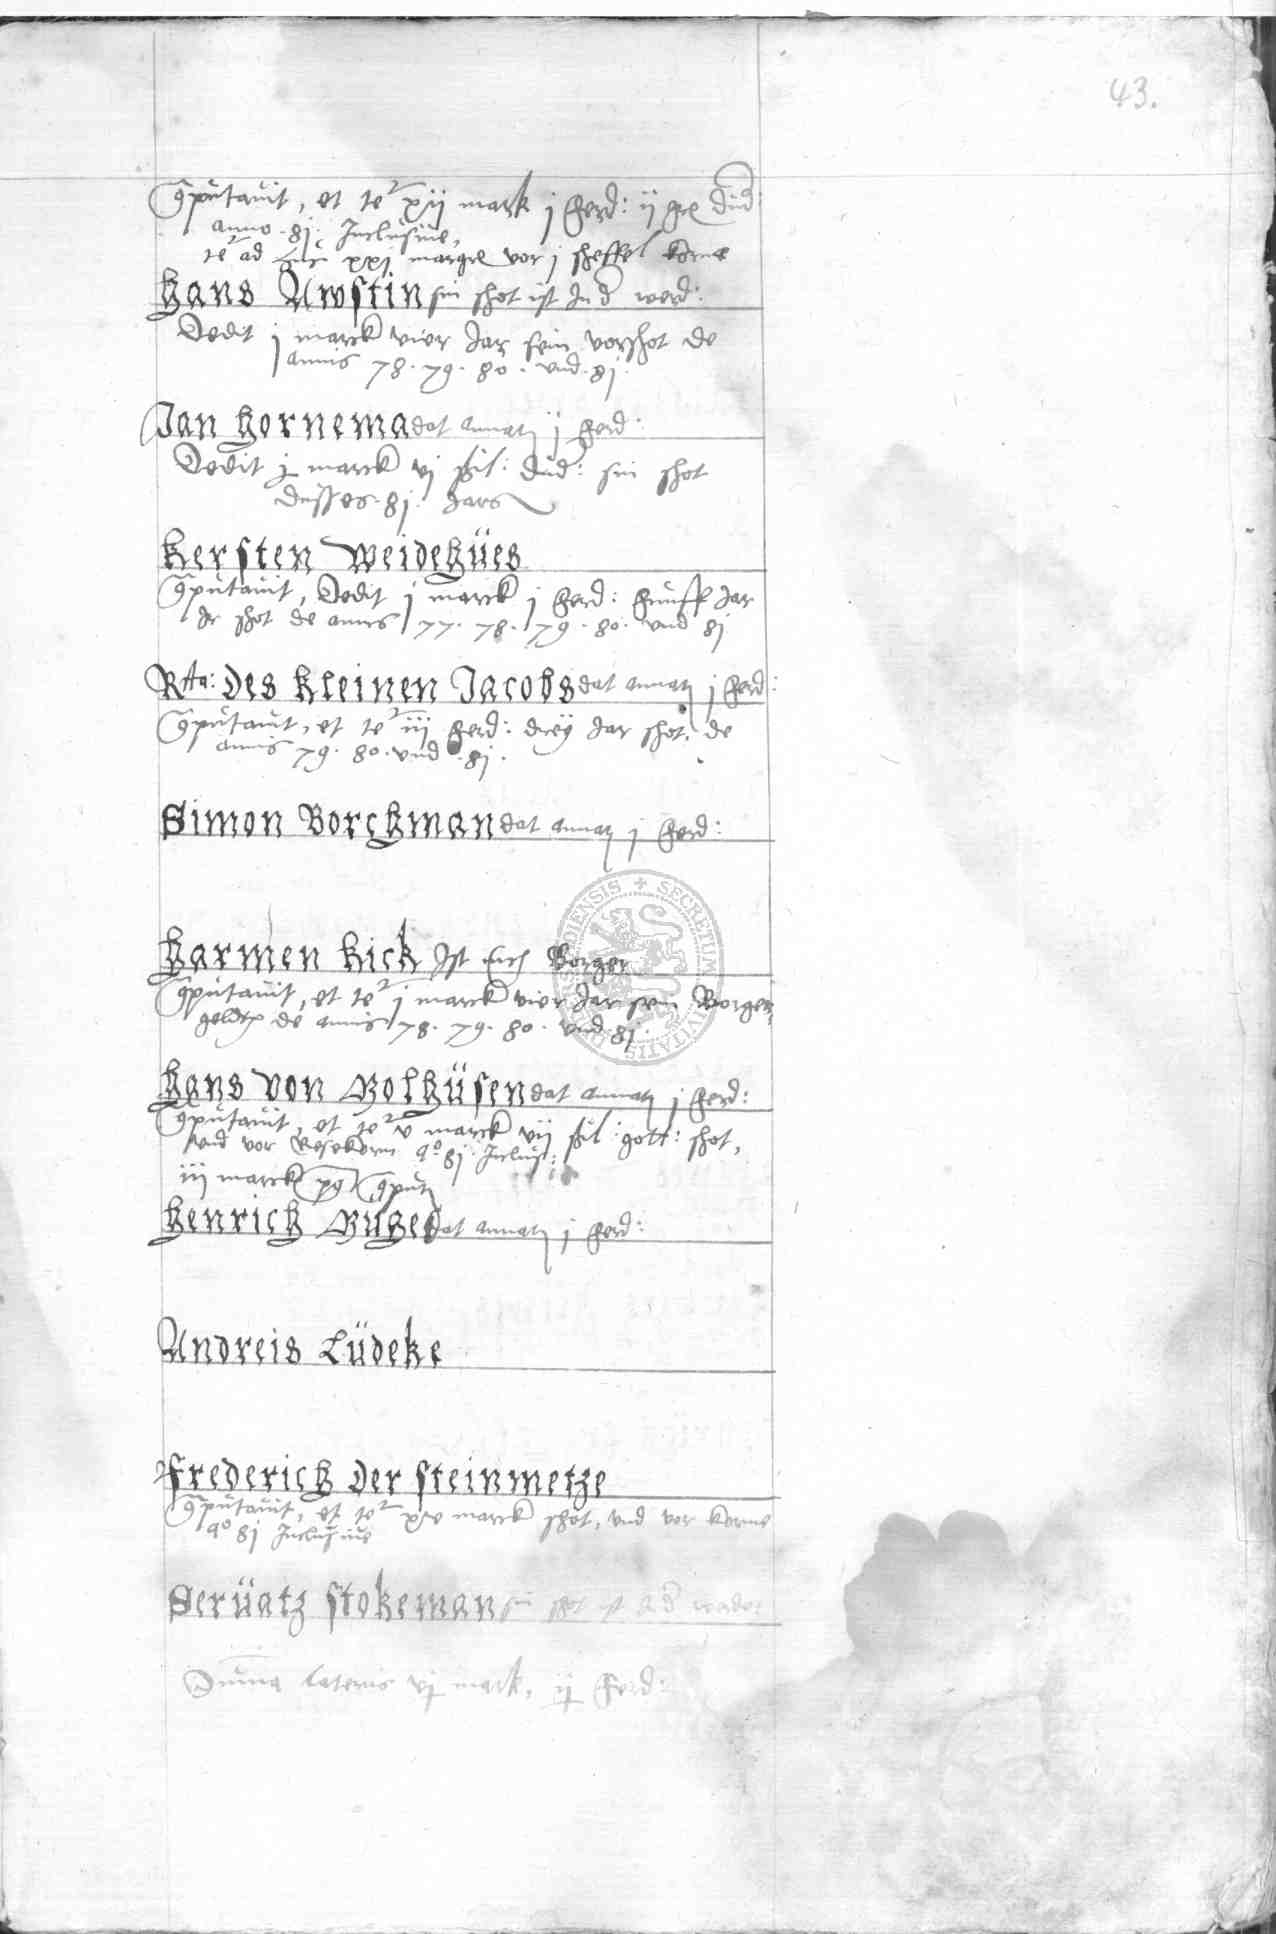 43.
Computauit, et tenetur xij mark j ferd: ij gr dud:
anno 8j Inclusiue,
tenetur ad huc xxj margr vor j sheffel korne
Hans Awstin sin shot ist In d werd:
Dedit j marck vier Jar sein vorshot de
annis 78. 79. 80. vnd 8j.
Jan Hornema dat annatj j ferd:
Dedit j marck vj sil: dud: sin shot
dusses 8j. Jars
Kersten Weidehües
Computauit, Dedit j marck j ferd: funff Jar
Ir shot de annis 77. 78. 79. 80. vnd 8j
Rta: des Kleinen Jacobs dat annatj j ferd:
Computauit, et tenetur iij ferd: drey Jar shot: de
annis 79. 80. vnd 8j.
Simon Borchman dat annatj j ferd:
Harmen Kick Ist Auch Borger
Computauit, et tenetur j marck vier Jar sein Borger
geldt de annis 78. 79. 80. vnd 8j.
Hans von Bolhüsen dat annatj j ferd:
Computauit, et tenetur v marck vij sil: gott: shot,
vnd vor Rosekorn ao 8j Inclus:
iij marck
Henrich Buße dat annatj j ferd:
Andreis Lüdeke
Frederich der steinmetze
Computauit, et tenetur xv marck shot, vnd vor korne
ao 8j Inclusiue
Seruatz stokeman sin shot ist In d werde:
Summa lateris vj mark, ij ferd:
SECRETUM CIVITATIS